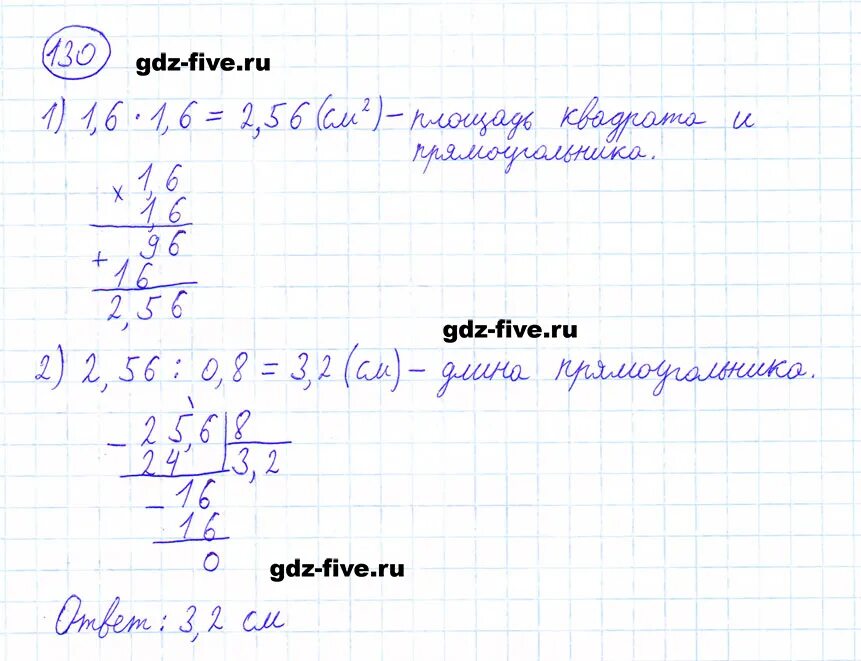 130
gdz-five.ru
1) 1,6 · 1,6 = 2,56 (см²) – площадь квадрата и
прямоугольника.
× 1,6
1,6
+ 96
16
2,56
gdz-five.ru
2) 2,56 : 0,8 = 3,2 (см) – длина прямоугольника.
– 25,6 8
24 3,2
– 16
16
0
gdz-five.ru
Ответ: 3,2 см